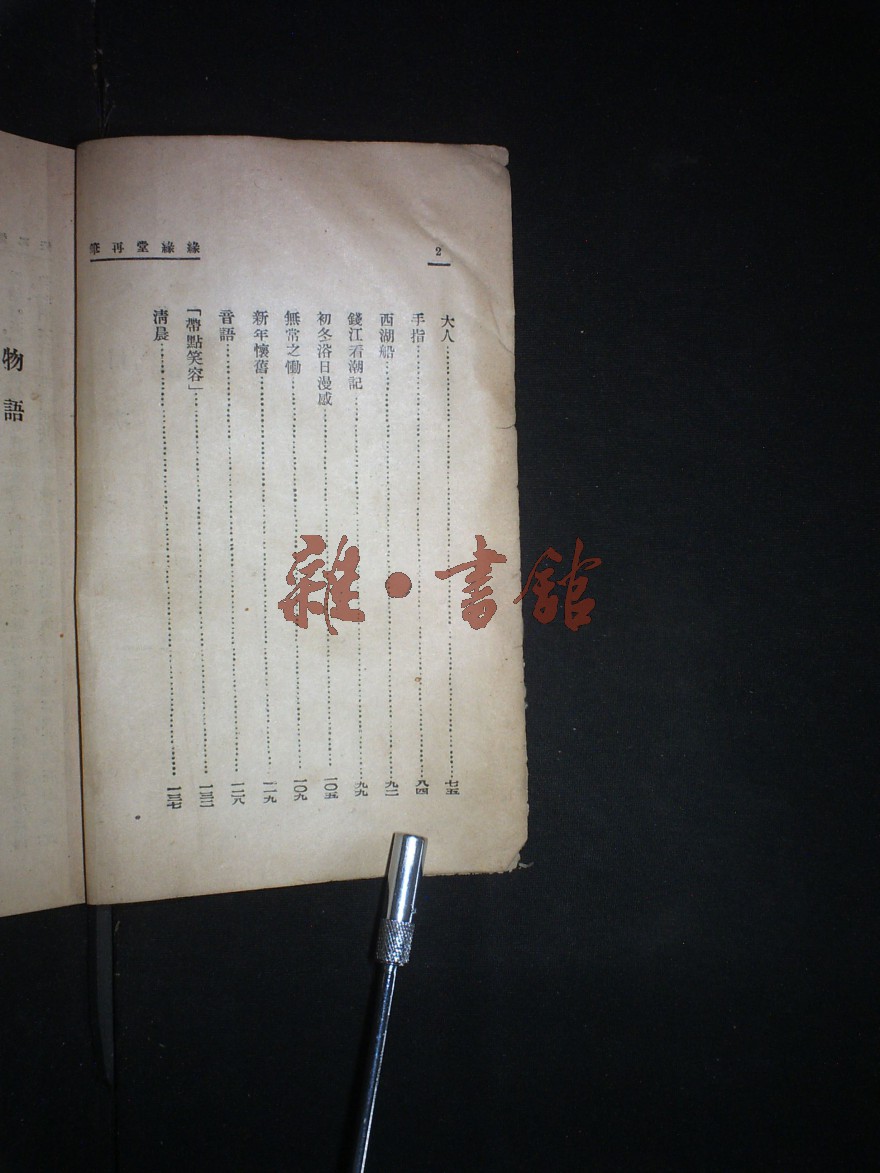 2
緣緣堂再筆
大人……七五
手指……八四
西湖船……九二
錢江看潮記……九九
初冬浴日漫感……一〇五
無常之慟……一〇九
新年懷舊……一一九
音語……一二八
「帶點笑容」……一三二
清晨……一三七
物語
雜·書館